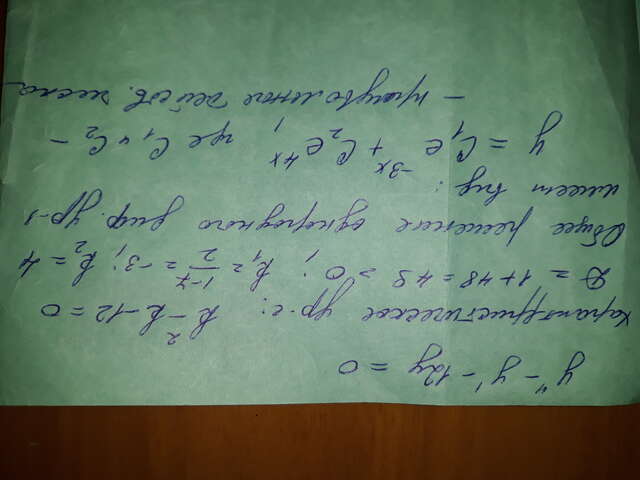 y" - y' - 12y = 0
Характерристическое ур-е: k² - k - 12 = 0
D = 1 + 48 = 49 > 0; k₁ = (1-7)/2 = -3; k₂ = 4
Общее решение однородного диф. ур-я
имеет вид:
y = C₁e^(-3x) + C₂e^(4x), где C₁ и C₂ -
- произвольные действ. числа